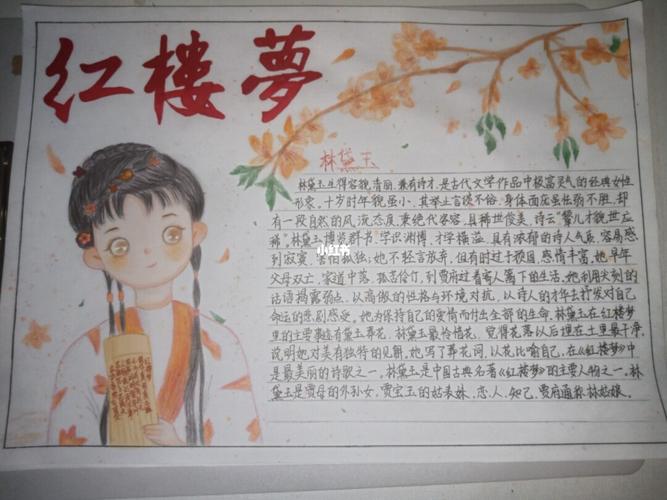 红楼夢
林黛玉
林黛玉生得容貌清丽,兼有诗才,是古代文学作品中极富灵气的经典女性
形象,十岁时年貌虽小,其举止言谈不俗,身体面庞虽怯弱不胜,却
有一段自然的风流态度秉绝代姿容,具稀世俊美,诗云“颦儿才貌世应
稀”林黛玉博览群书,学识渊博,才学横溢,具有浓郁的诗人气质,容易感
到寂寞,害怕孤独;她不轻言放弃,但有时过于顽固,感情丰富,她早年
父母双亡,家道中落,孤苦伶仃,到贾府过着寄人篱下的生活,她利用尖刻的
话语揭露弱点,以高傲的性格与环境对抗,以诗人的才华去抒发对自己
命运的悲剧感受,她为保持自己的爱情而付出全部的生命,林黛玉在红楼梦
里的主要事迹有黛玉葬花,林黛玉最怜惜花,觉得花落以后埋在土里最干净,
说明她对美有独特的见解,她写了葬花词,以花比喻自己,在《红楼梦》中
是最美丽的诗歌之一。林黛玉是中国古典名著《红楼梦》的主要人物之一,林
黛玉是贾母的外孙女,贾宝玉的姑表妹,恋人,知己,贾府通称林姑娘。
小红书